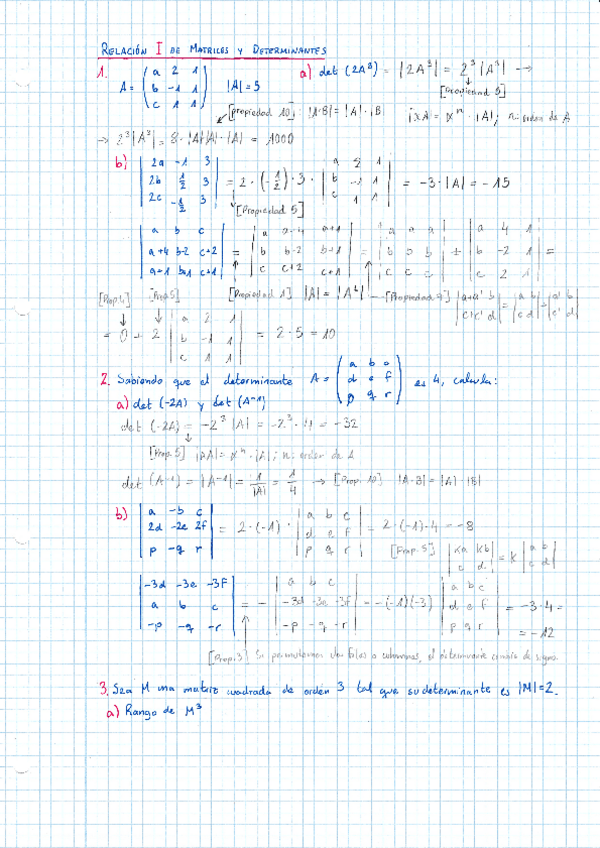 RELACIÓN I DE MATRICES Y DETERMINANTES
1. A = ( a 2 1 ; b -1 1 ; c 1 1 ) |A| = 5 a) det (2A³) = |2A³| = 2³ |A³| →
[Propiedad 5]
[propiedad 10]: |A·B| = |A|·|B| |αA| = αⁿ · |A|; n: orden de A
→ 2³|A³| = 8·|A|·|A|·|A| = 1000
b) | 2a -1 3 ; 2b 1/2 3 ; 2c -1/2 3 | = 2·(-1/2)·3· | a 2 1 ; b -1 1 ; c 1 1 | = -3·|A| = -15
[Propiedad 5]
| a b c ; a+4 b-2 c+2 ; a+1 b+1 c+1 | = | a a+4 a+1 ; b b-2 b+1 ; c c+2 c+1 | = | a a a ; b b b ; c c c | + | a 4 1 ; b -2 1 ; c 2 1 | =
[Prop.4] [Prop.5] [Propiedad 1] |A| = |Aᵗ| [Propiedad 9] | a+a' b ; c+c' d | = | a b ; c d | + | a' b ; c' d |
= 0 + 2 | a 2 1 ; b -1 1 ; c 1 1 | = 2·5 = 10
2. Sabiendo que el determinante A = ( a b c ; d e f ; p q r ) es 4, calcula:
a) det (-2A) y det (A⁻¹)
det (-2A) = -2³ |A| = -2³ · 4 = -32
[Prop.5] |αA| = αⁿ · |A|; n: orden de A
det (A⁻¹) = |A⁻¹| = 1/|A| = 1/4 → [Prop. 10] |A·B| = |A|·|B|
b) | a -b c ; 2d -2e 2f ; p -q r | = 2·(-1)· | a b c ; d e f ; p q r | = 2·(-1)·4 = -8
[Prop. 5] | Ka Kb ; c d | = K | a b ; c d |
| -3d -3e -3f ; a b c ; -p -q -r | = - | a b c ; -3d -3e -3f ; -p -q -r | = -(-1)(-3) | a b c ; d e f ; p q r | = -3·4 =
= -12
[Prop.3] Si permutamos dos filas o columnas, el determinante cambia de signo.
3. Sea M una matriz cuadrada de orden 3 tal que su determinante es |M|=2.
a) Rango de M³